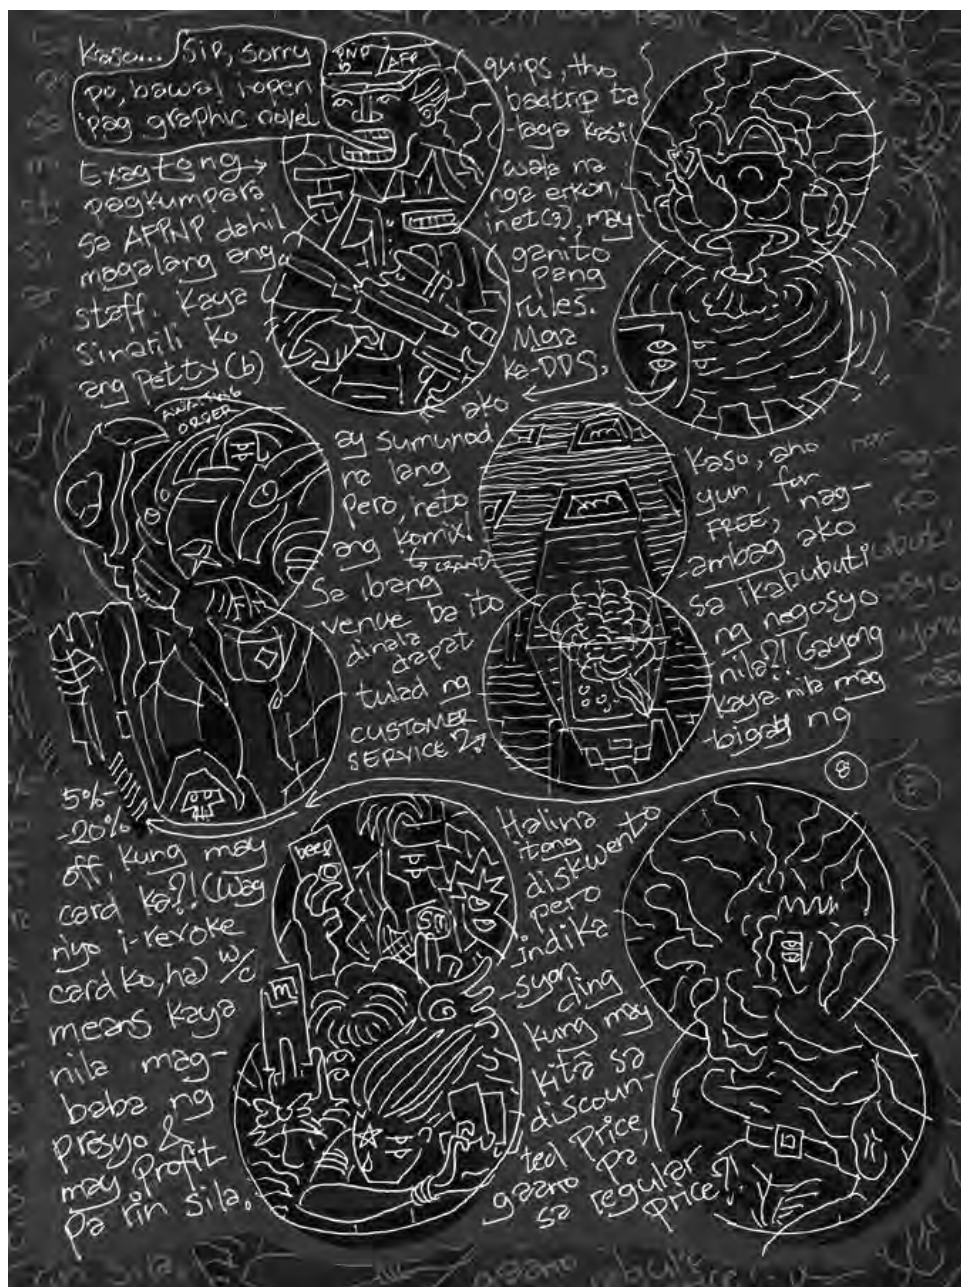 Kaso... Sir, sorry
po, bawal i-open
'pag graphic novel
PNP
AFP
Exag tong
pagkumpara
sa AFPNP dahil
magalang ang
staff. Kaya
sinarili ko
ang petty (b)
quips, tho
badtrip ta
-laga kasi
wala na
nga erkon,
inet (g), may
ganito
pang
rules.
Mga
ka-DDS,
AWAITING
ORDER
ako
ay sumunod
na lang
pero, neto
ang komix!
Sa ibang
venue ba ito
dinala
dapat
tulad ng
CUSTOMER
SERVICE?
Kaso, ano
yun, for
FREE, nag-
-ambag ako
sa ikabubuti
ng negosyo
nila?! Gayong
kaya nila mag
-bigay ng
8
5%-
-20%
off, kung may
card ka?! (Wag
niyo i-revoke
card ko, ha) w/c
means kaya
nila mag-
baba ng
presyo &
may profit
pa rin sila.
beep
m
Halina
itong
diskwento
pero
indika
-syon
ding
kung may
kita sa
discoun-
ted price,
gaano pa
sa regular
price?!